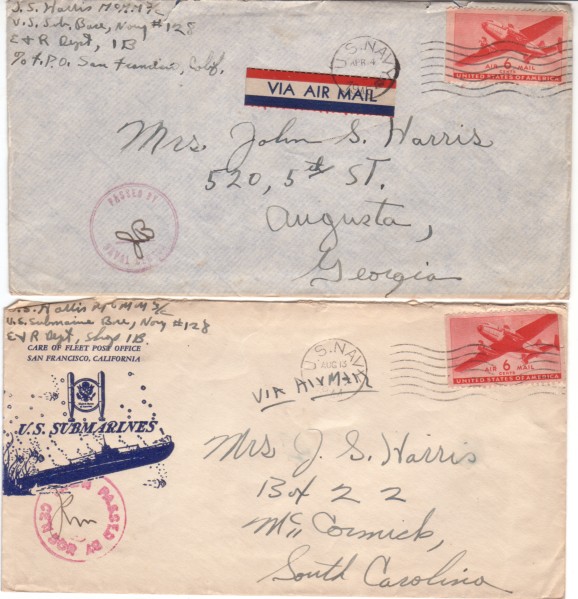 J. S. Harris MoMM 3/c
U.S. Sub. Base, Navy #128
E & R Dept, 1B
% F.P.O. San Francisco, Calif.
U.S. NAVY
APR 4
AIR 6 MAIL
CENTS
UNITED STATES OF AMERICA
VIA AIR MAIL
Mrs. John S. Harris
520, 5th ST.
Augusta,
Georgia
PASSED BY
NAVAL
JB
J.S. Harris MoMM 3/c
U.S. Submarine Base, Navy #128
E & R Dept, Shop 1B
CARE OF FLEET POST OFFICE
SAN FRANCISCO, CALIFORNIA
U.S. NAVY
AUG 13
AIR 6 MAIL
CENTS
UNITED STATES OF AMERICA
VIA AIRMAIL
U.S. SUBMARINES
Mrs J. S. Harris
Box 22
McCormick,
South Carolina
PASSED BY